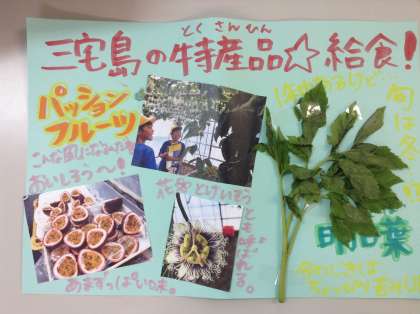 とくさんひん
三宅島の特産品☆給食！
パッション
フルーツ
こんな風になるんだね
おいしそう〜！
あまずっぱい味。
花をとけいそう
とも呼ばれる。
1年中あるけど
旬は冬
明日葉